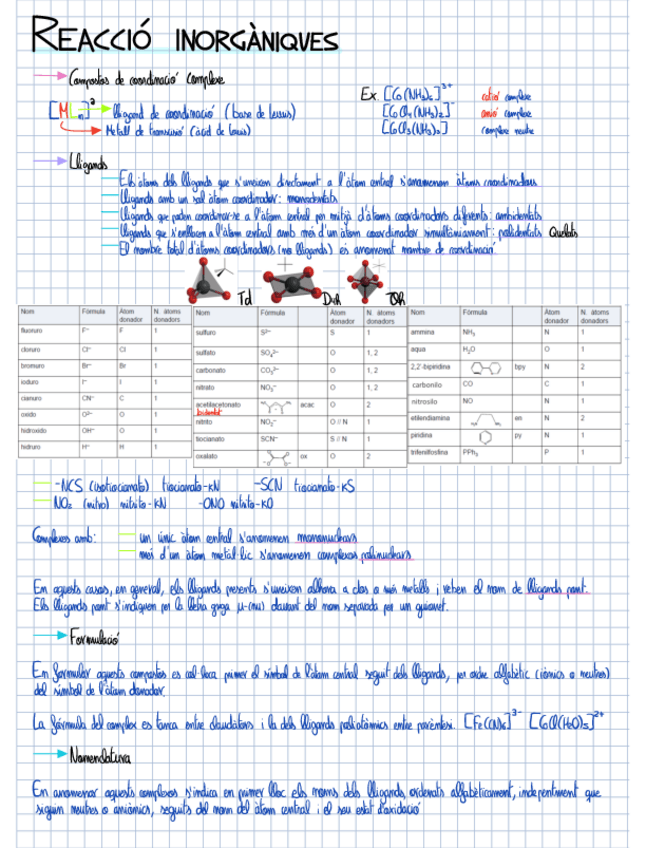 REACCIÓ INORGÀNIQUES
Compostos de coordinació complexe
Ex. [Co(NH₃)₆]³⁺ catió complexe
[MLₙ] lligand de coordinació (base de Lewis)
[CoCl₄(NH₃)₂]⁻ anió complexe
Metall de transició (àcid de Lewis)
[CoCl₃(NH₃)₃] complexe neutre
Lligands
Els àtoms dels lligands que s'uneixen directament a l'àtom central s'anomenen àtoms coordinadors
Lligands amb un sol àtom coordinador: monodentats
Lligands que poden coordinar-se a l'àtom central per mitjà d'àtoms coordinadors diferents: ambidentats
Lligands que s'enllacen a l'àtom central amb més d'un àtom coordinador simultàniament: polidentats Quelats
El nombre total d'àtoms coordinadors (no lligands) es anomenat nombre de coordinació.
Td D₄h Oh
Nom Fórmula Àtom donador N. àtoms donadors
fluoruro F⁻ F 1
cloruro Cl⁻ Cl 1
bromuro Br⁻ Br 1
ioduro I⁻ I 1
cianuro CN⁻ C 1
oxido O²⁻ O 1
hidroxido OH⁻ O 1
hidruro H⁻ H 1
Nom Fórmula Àtom donador N. àtoms donadors
sulfuro S²⁻ S 1
sulfato SO₄²⁻ O 1, 2
carbonato CO₃²⁻ O 1, 2
nitrato NO₃⁻ O 1, 2
acetilacetonato acac O 2
bidentat
nitrito NO₂⁻ O // N 1
tiocianato SCN⁻ S // N 1
oxalato ox O 2
Nom Fórmula Àtom donador N. àtoms donadors
ammina NH₃ N 1
aqua H₂O O 1
2,2'-bipiridina bpy N 2
carbonilo CO C 1
nitrosilo NO N 1
etilendiamina en N 2
piridina py N 1
trifenilfosfina PPh₃ P 1
-NCS (isotiocianato) tiocianato-κN -SCN tiocianato-κS
NO₂ (nitro) nitrito-κN -ONO nitrito-κO
Complexes amb: un únic àtom central s'anomenen mononuclears
més d'un àtom metàl·lic s'anomenen complexos polinuclears
En aquests casos, en general, els lligands presents s'uneixen alhora a dos o més metalls i reben el nom de lligands pont.
Els lligands pont s'indiquen per la lletra grega μ-(mu) davant del nom separada per un guionet.
Formulació
En formular aquests compostos es col·loca primer el símbol de l'àtom central seguit dels lligands, per ordre alfabètic (iònics o neutres)
del símbol de l'àtom donador.
La fórmula del complex es tanca entre claudàtors i la dels lligands poliatòmics entre parèntesi. [Fe(CN)₆]³⁻ [CoCl(H₂O)₅]²⁺
Nomenclatura
En anomenar aquests complexos s'indica en primer lloc els noms dels lligands, ordenats alfabèticament, indepentment que
siguin neutres o aniònics, seguits del nom del àtom central i el seu estat d'oxidació